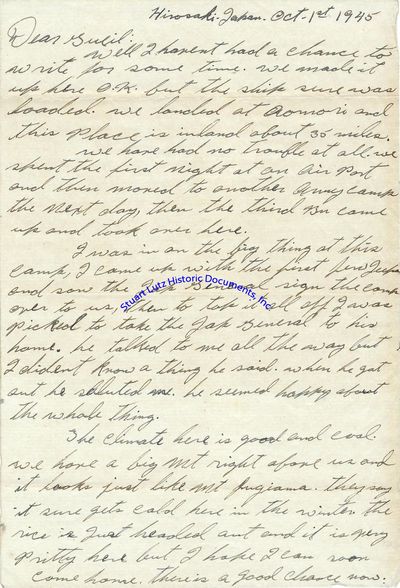 Hirosaki-Japan. Oct-1st 1945
Dear
Well I havent had a chance to
write for some time. we made it
up here O.K. but the ship sure was
loaded. we landed at Aomori and
this Place is inland about 35 miles.
we have had no trouble at all. we
spent the first night at an Air Port
and then moved to another Army camp
the next day, then the third Bn came
up and took over here.
I was in on the big thing at this
camp, I came up with the first few Jeeps
and saw the Jap General sign the camp
over to us, then to top it all off I was
picked to take the Jap General to his
home. he talked to me all the way but
I dident know a thing he said. when he got
out he saluted me. he seemed happy about
the whole thing.
The climate here is good and cool.
we have a big Mt right above us and
it looks just like Mt Fugiama. they say
it sure gets cold here in the winter. the
rice is Just headed out and it is very
pritty here but I hope I can soon
come home. there is a good chance now.
Stuart Lutz Historic Documents, Inc.